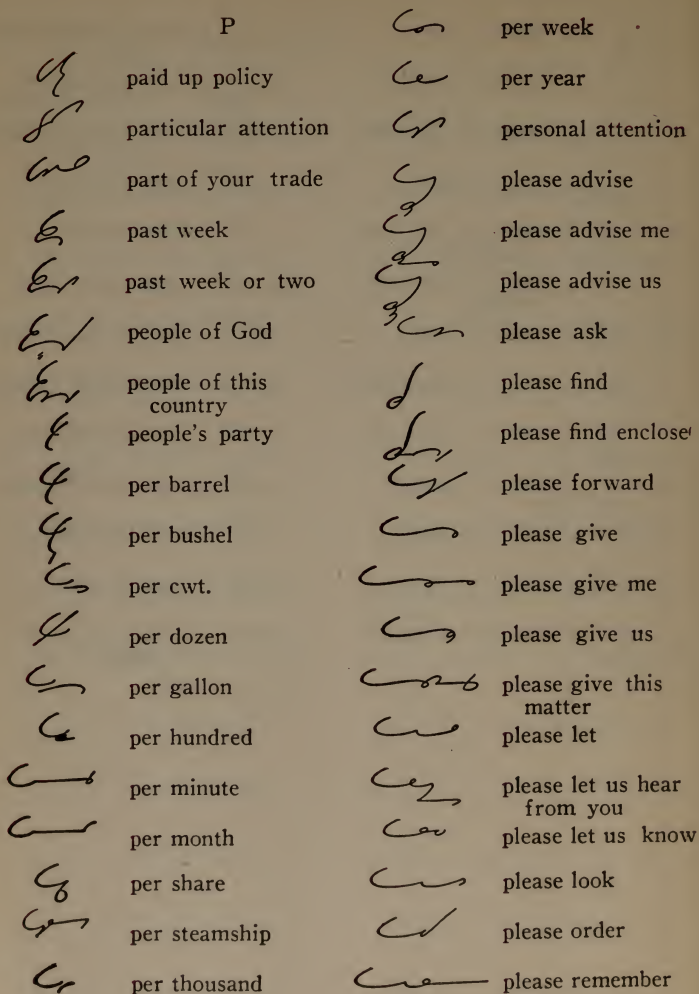 P
paid up policy
particular attention
part of your trade
past week
past week or two
people of God
people of this
country
people's party
per barrel
per bushel
per cwt.
per dozen
per gallon
per hundred
per minute
per month
per share
per steamship
per thousand
per week
per year
personal attention
please advise
please advise me
please advise us
please ask
please find
please find enclose
please forward
please give
please give me
please give us
please give this
matter
please let
please let us hear
from you
please let us know
please look
please order
please remember